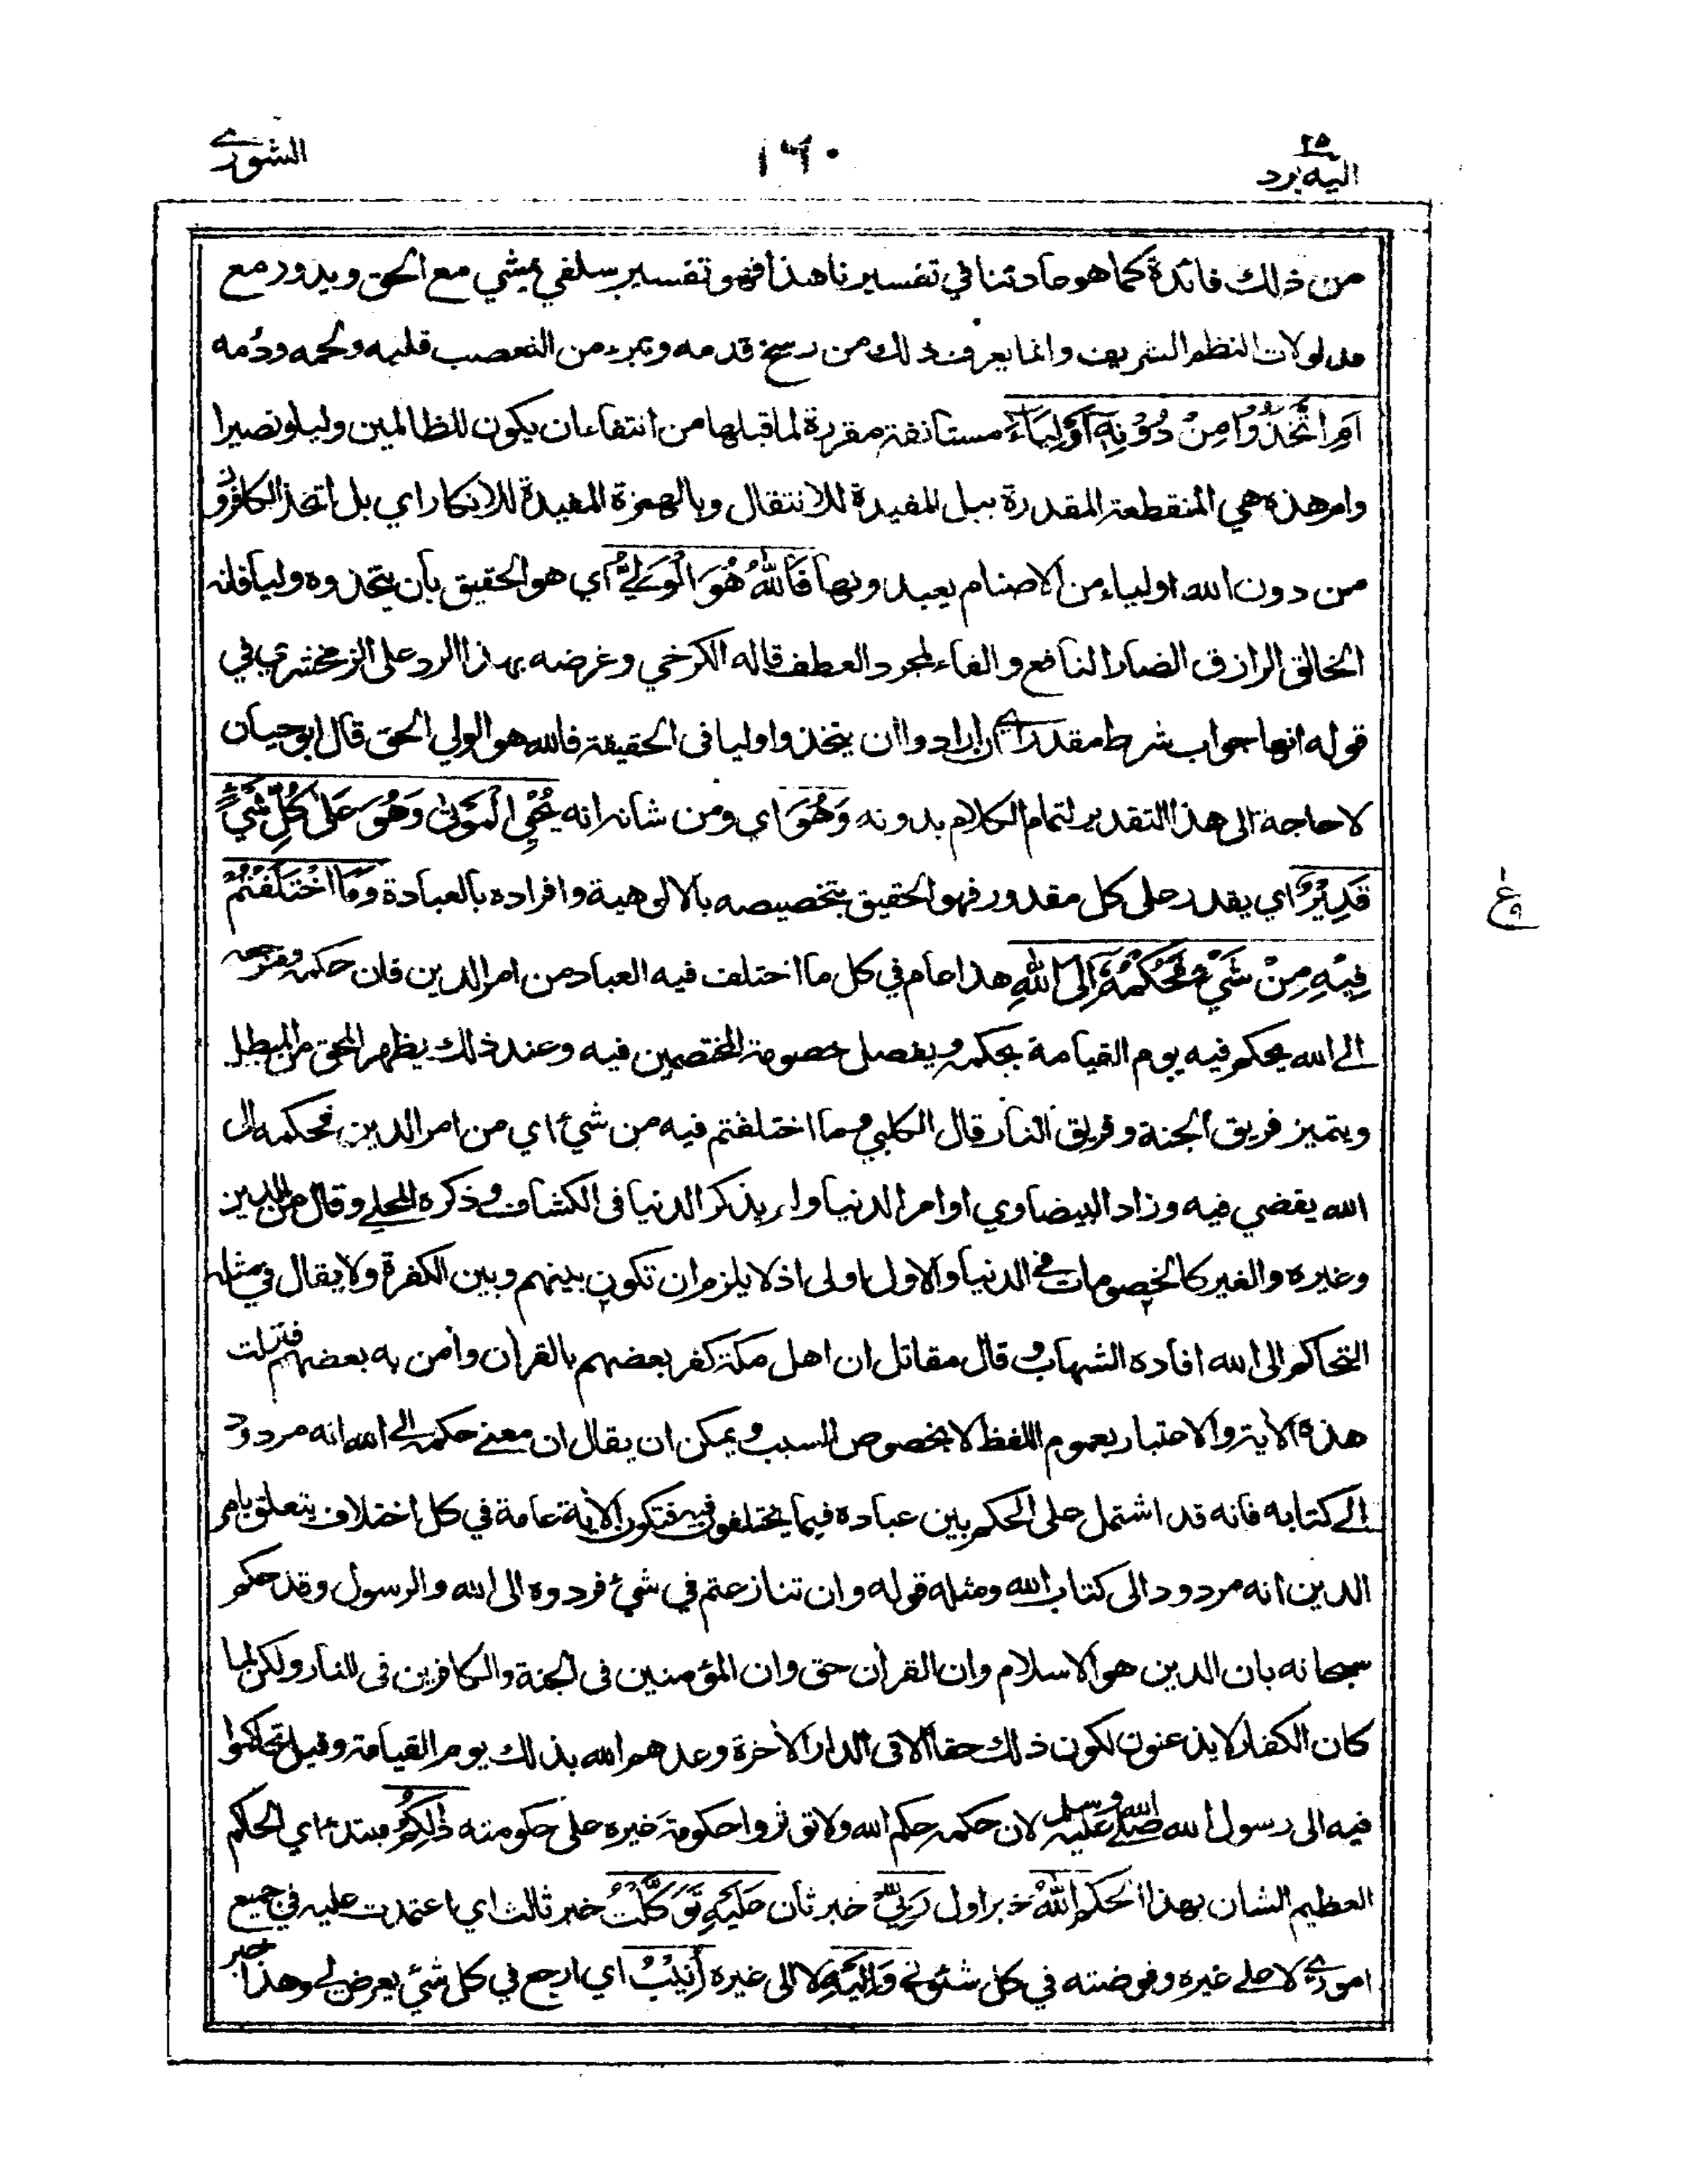 اليه يرد ٢٥
١٦٠
الشورى
من ذلك فائدة كما هو عادتنا في تفسيرنا هذا فهو تفسير سلفي يمشي مع الحق ويدور مع
مدلولات النظم الشريف وانما يعرف ذلك من رسخ قدمه وتبرء من التعصب قلبه ولحمه ودمه
اَمِ اتَّخَذُوْا مِنْ دُوْنِهٖٓ اَوْلِيَآءَ مستأنفة مقررة لما قبلها من انتفاء ان يكون للظالمين وليا ونصيرا
وام هذه هي المنقطعة المقدرة ببل المفيدة للانتقال وبالهمزة المفيدة للانكار اي بل اتخذ الكافرون
من دون الله اولياء من الاصنام يعبدونها فَاللّٰهُ هُوَ الْوَلِيُّ اي هو الحقيق بأن يتخذوه وليا فانه
الخالق الرازق الضار النافع والفاء لمجرد العطف قاله الكرخي وغرضه بهذا الرد على الزمخشري في
قوله انها جواب شرط مقدر اي ان ارادوا ان يتخذوا وليا في الحقيقة فالله هو الولي الحق قال ابو حيان
لا حاجة الى هذا التقدير لتمام الكلام بدونه وَهُوَ اي ومن شانه انه يُحْيِي الْمَوْتٰى وَهُوَ عَلٰى كُلِّ شَيْءٍ
قَدِيْرٌ اي يقدر على كل مقدور فهو الحقيق بتخصيصه بالالوهية وافراده بالعبادة وَمَا اخْتَلَفْتُمْ
فِيْهِ مِنْ شَيْءٍ فَحُكْمُهٗٓ اِلَى اللّٰهِ هذا عام في كل ما اختلف فيه العباد من امر الدين فان حكمه ومرجعه
الى الله يحكم فيه يوم القيامة بحكمه ويفصل خصومة المختصمين فيه وعند ذلك يظهر المحق من المبطل
ويتميز فريق الجنة وفريق النار قال الكلبي وما اختلفتم فيه من شيء اي من امر الدين فحكمه الى
الله يقضي فيه وزاد البيضاوي او امر الدنيا ولم يذكر الدنيا في الكشاف وذكره المحلي وقال من الدين
وغيره والغير كالخصومات في الدنيا والاول اولى اذ لا يلزم ان تكون بينهم وبين الكفرة ولا يقال في مثله
التحاكم الى الله افاده الشهاب وقال مقاتل ان اهل مكة كفر بعضهم بالقران وأمن به بعضهم فنزلت
هذه الأية والاعتبار بعموم اللفظ لا بخصوص السبب ويمكن ان يقال ان معنى حكمه الى الله انه مردود
الى كتابه فانه قد اشتمل على الحكم بين عباده فيما يختلفون فيه فتكون الأية عامة في كل اختلاف يتعلق بامر
الدين انه مردود الى كتاب الله ومثله قوله وان تنازعتم في شيء فردوه الى الله والرسول وقد حكم
سبحانه بان الدين هو الاسلام وان القرأن حق وان المؤمنين في الجنة والكافرين في النار ولكن لما
كان الكفار لا يذعنون لكون ذلك حقا الا في الدار الأخرة وعدهم الله بذلك يوم القيامة وقيل تحاكموا
فيه الى رسول الله صلى الله عليه وسلم لان حكمه حكم الله ولا تؤثروا حكومة غيره على حكومته ذٰلِكُمُ مبتدء اي الحاكم
العظيم الشان بهذا الحكم اللّٰهُ خبر اول رَبِّيْ خبر ثان عَلَيْهِ تَوَكَّلْتُ خبر ثالث اي اعتمدت عليه في جميع
اموري لا على غيره وفوضته في كل شئوني وَاِلَيْهِ لا الى غيره اُنِيْبُ اي ارجع في كل شيء يعرض لي وهذا خبر
ع